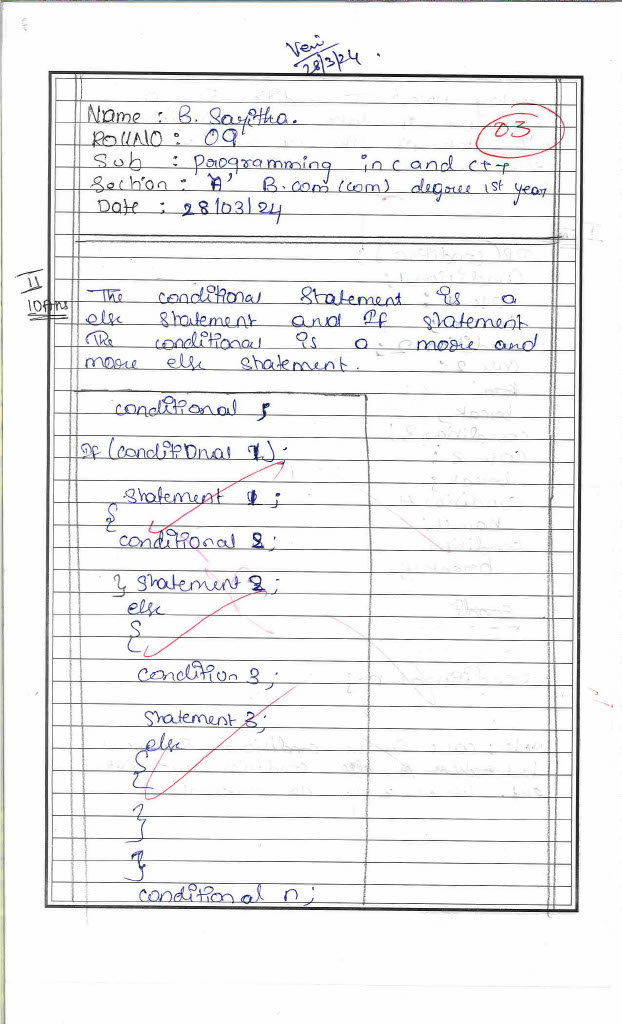 28/3/24.
Name : B. Sayitha.
03
Roll NO : 09
Sub : programming in c and c++
Section : 'A' B.com (com) degree 1st year
Date : 28/03/24
II
10Ans
The conditional Statement : is a
else statement and If statement
The conditional is a more and
more else statement.
conditional ;
If (conditional 1) ;
Statement 1 ;
{
conditional 2 ;
} Statement 2 ;
else
{
condition 3 ;
Statement 3 ;
else
{
}
}
conditional n ;